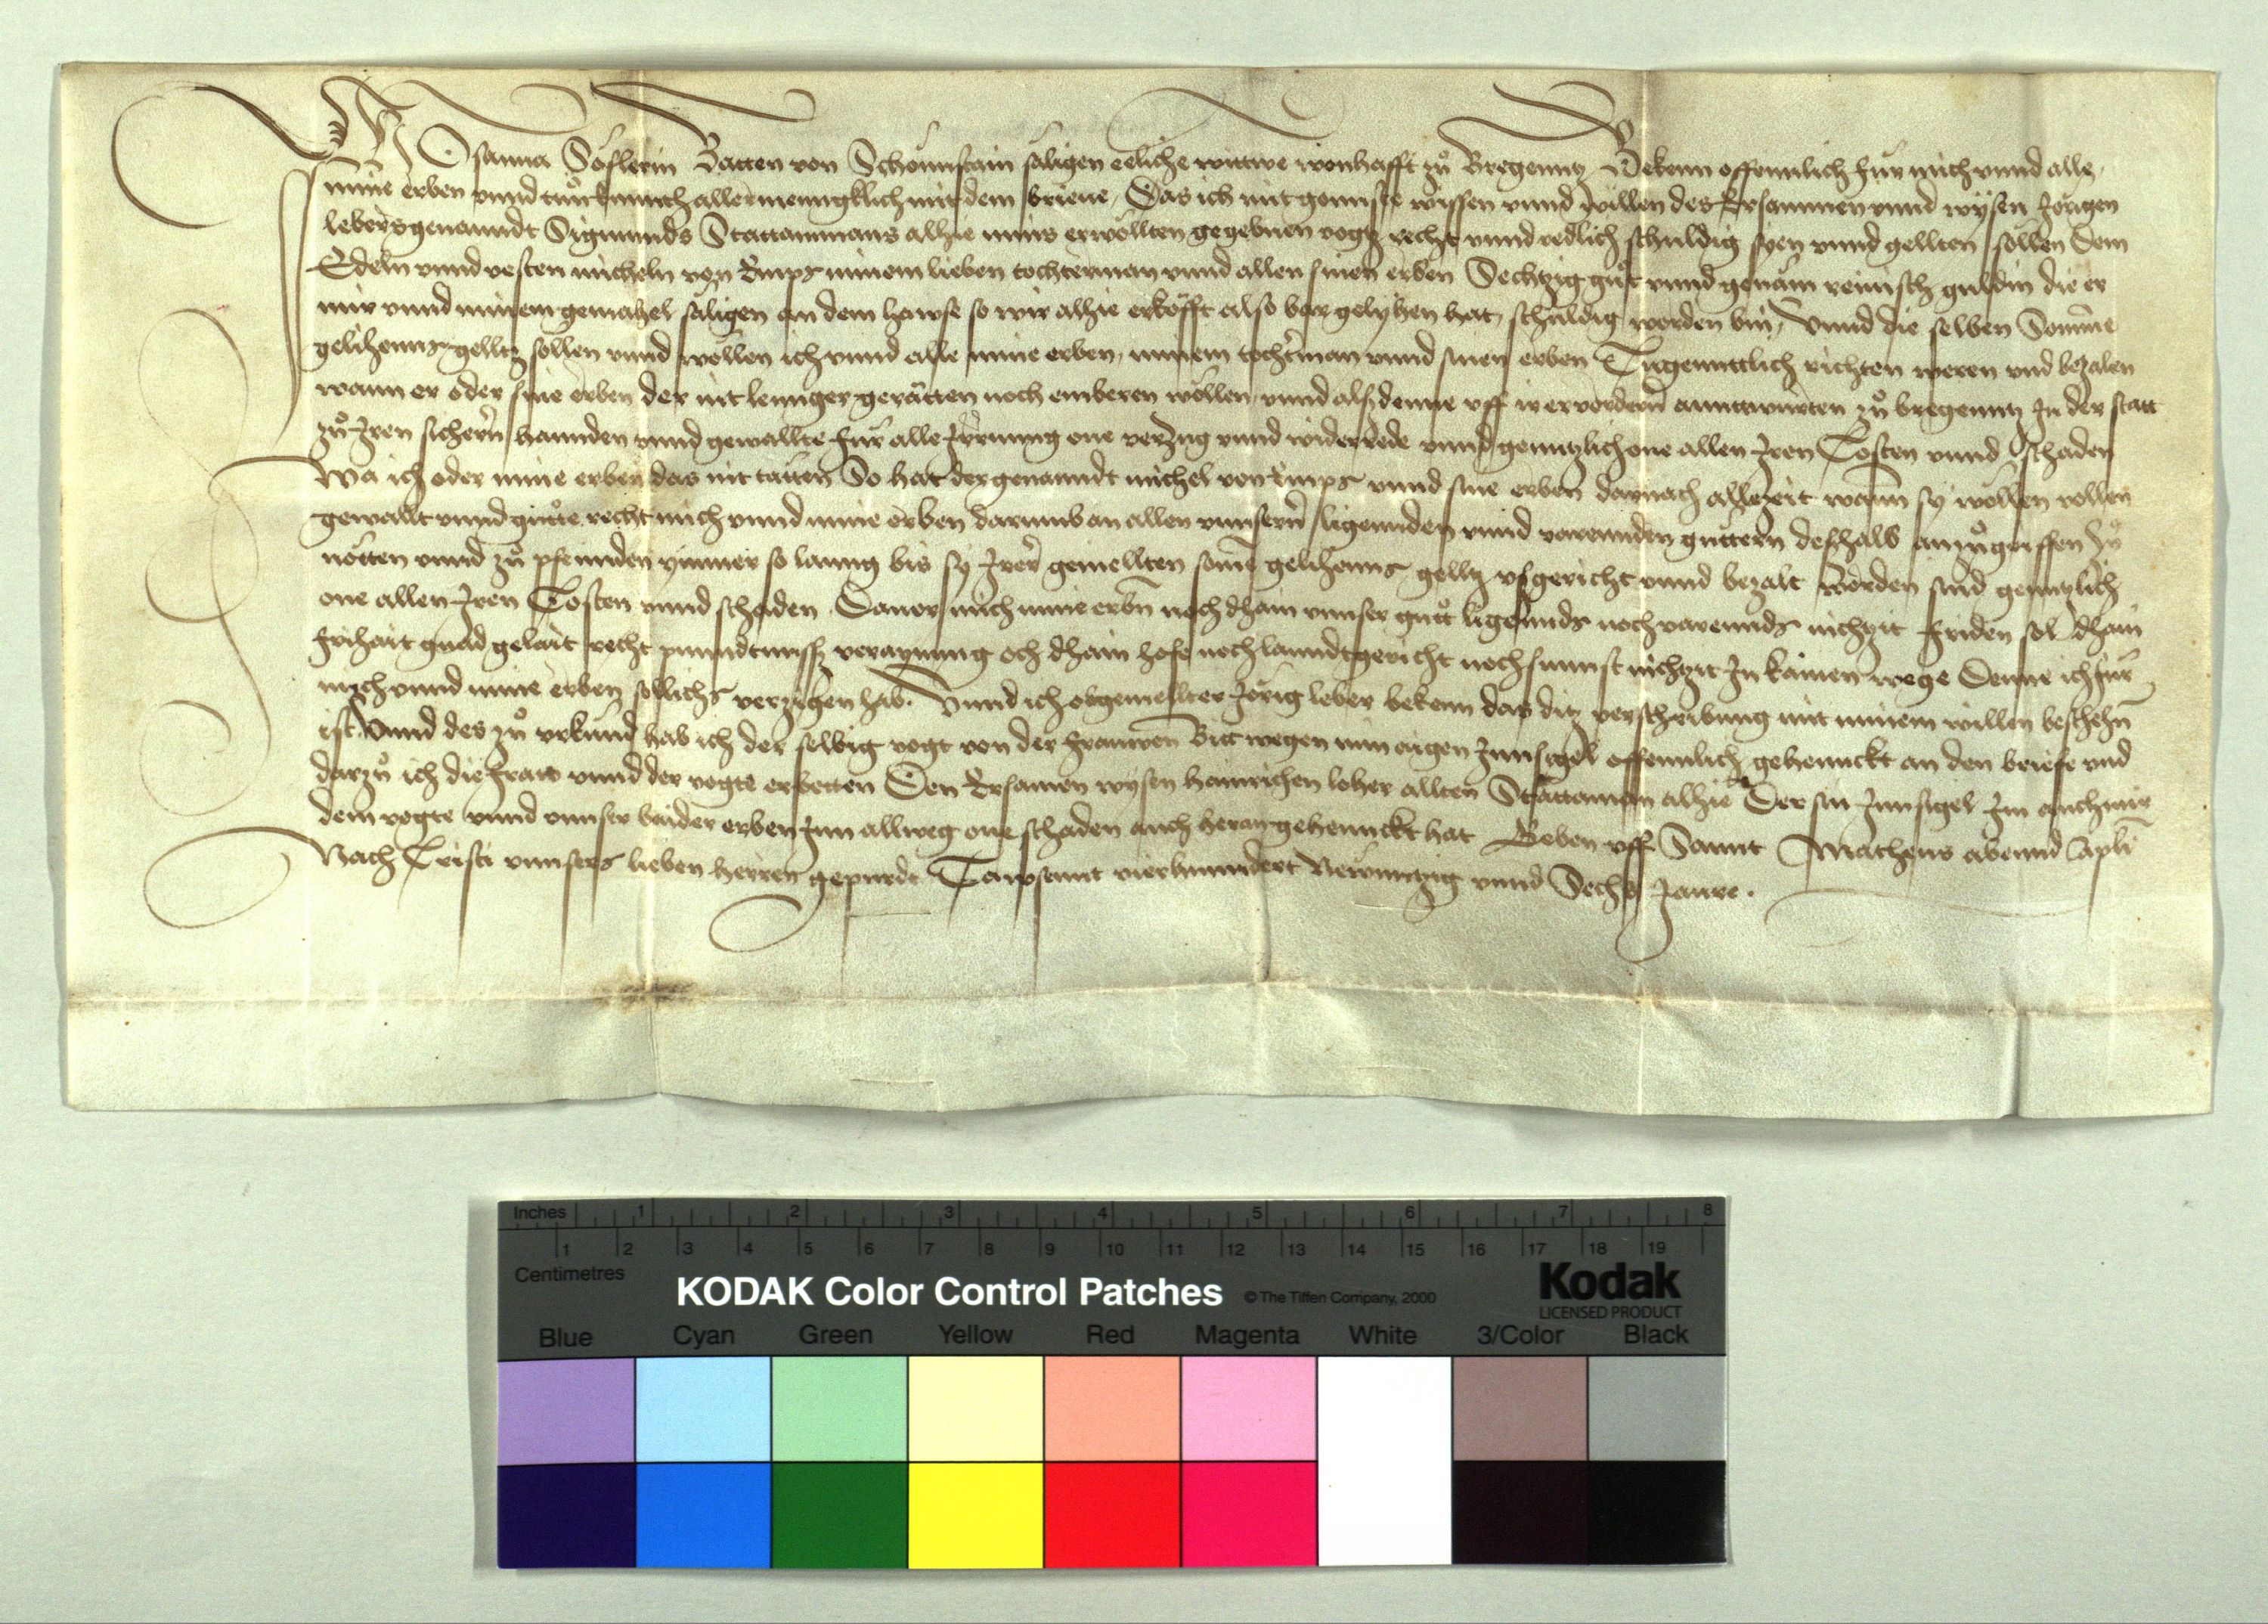 Ich Osanna Söflerin Batten von Schönnstain säligen eeliche wittwe wonhafft zů Bregenntz Bekenn offennlich für mich vnnd alle
mine erben vnnd tůn kunnth allermenngklich mit dem brieue, Das ich mit gonnste wissen vnnd willen des Ersammen vnnd wysen Jörigen
lebers genanndt Sigmunds Stattammans alhie mins erwöllten gegebnen vogtz recht vnnd redlich schuldig syen vnnd gellten söllen Dem
Edeln vnnd vesten micheln von Emps minem lieben tochterman vnnd allen sinen erben Sechtzig gůt vnnd genäm reinisch guldin die er
mir vnnd minem gemahel säligen an dem hawse so wir alhie erköfft also bar gelyhen hat, schuldig worden bin, Vnnd die selben Somme
gelihenns gelltz sollen vnnd wöllen ich vnnd alle mine erben, minem tochtman vnnd sinen erben Tugenntlich richten weren vnd bezalen
wann er oder sine erben der nit lennger gerätten noch emberen wöllen vnnd alsdenne vff ir ervordern anntwurten zů bregenntz In der statt
zů Iren sichern hannden vnnd gewallte für alle Irrung one verzug vnnd widerrede vnnd genntzlich one allen Iren Costen vnnd schaden
Wa ich oder mine erben das nit tätten So hat der genanndt michel von Emps vnnd sine erben darnach allezeit wann sy wöllen vollen
gewallt vnnd gůtte recht mich vnnd mine erben darumb an allen vnnsern ligennden vnnd varennden güttern deshalb anzůgriffen zů
nötten vnnd zů pfennden ymmer so lanng bis sy Irer gemellten some gelihenns gelltz vsgericht vnnd bezalt worden sind genntzlich
one allen Iren Costen vnnd schaden. Dauor mich mine erbn noch dhain vnnser gůtt ligennds noch varennds nichtzit friden sol dhain
frihait gnad gelait recht punndtnussz veraynung och dhain hofe noch lanndtgericht noch sunnst nichtzit In kainen wege Denne ich für
mich vnnd mine erben sollichs verzigen hab. Vnnd ich obgemellter Jörig leber bekenn das dis verschribung mit minem willen beschehn
ist Vnnd des zů vrkund hab ich der selbig vogt von der frauwen Bitt wegen min aigen Innsigel offennlich gehennckt an den briefe vnd
darzů ich die fraw vnnd der vogte erbetten Den Ersamen wysen hainrichen loher allten Stattaman alhie Der sin Innsigel Im auch mir
dem vogte vnnd vnnser baider erben Inn allweg one schaden auch heran gehennckt hat Geben vff Sannt Matheus abennd apli
Nach Cristi vnnsers lieben herren gepurdt Tawsennt vierhunndert Newntzig vnnd Sechs Jaure.
Inches 1 2 3 4 5 6 7 8
1 2 3 4 5 6 7 8 9 10 11 12 13 14 15 16 17 18 19
Centimetres
KODAK Color Control Patches © The Tiffen Company, 2000 Kodak
LICENSED PRODUCT
Blue Cyan Green Yellow Red Magenta White 3/Color Black